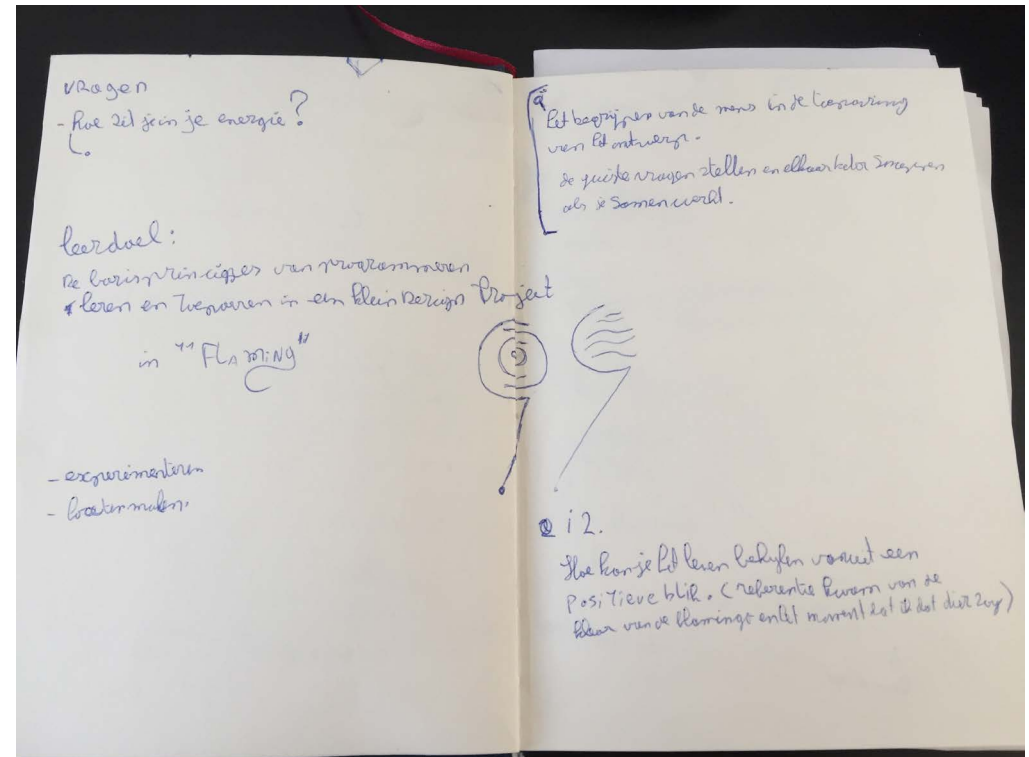 vragen
- hoe zit je in je energie?
leerdoel:
De basisprincipes van programmeren
leren en Toepassen in een klein Design Project
in "FLAMiNG"
- experimenteren
- fouten maken.
Het begrijpen van de mens in de
van het ontwerp.
de juiste vragen stellen en elkaar
als je Samenwerkt.
i 2.
Hoe kan je het leven bekijken vanuit een
POSiTieve blik. (referentie kwam van de
kleur van de flamingo en het moment dat ik dat dier zag)